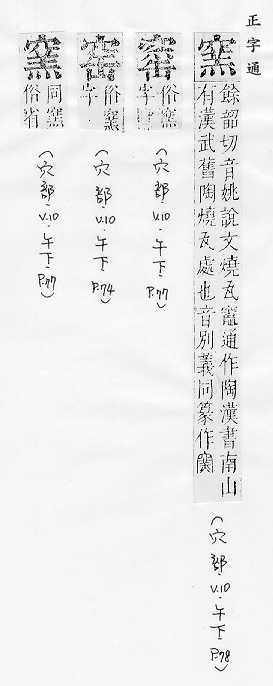 正字通
窯
餘韶切音姚說文燒瓦竈通作陶漢書南山
有漢武舊陶燒瓦處也音別義同篆作
(穴部·V.10·午下·P.78)
窰
俗窯
字
(穴部·V.10·午下·P.77)
俗窯
字
(穴部·V.10·午下·P.74)
同窯
俗省
(穴部·V.10·午下·P.77)